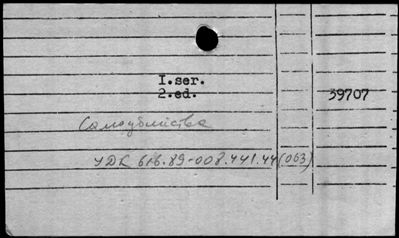 I.ser.
2.ed. 39707
Самоубийства
УДК 616.89-008.441.44(063)